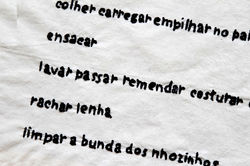 colher carregar empilhar no
ensacar
lavar passar remendar costurar
rachar lenha
limpar a bunda dos nhozinhos